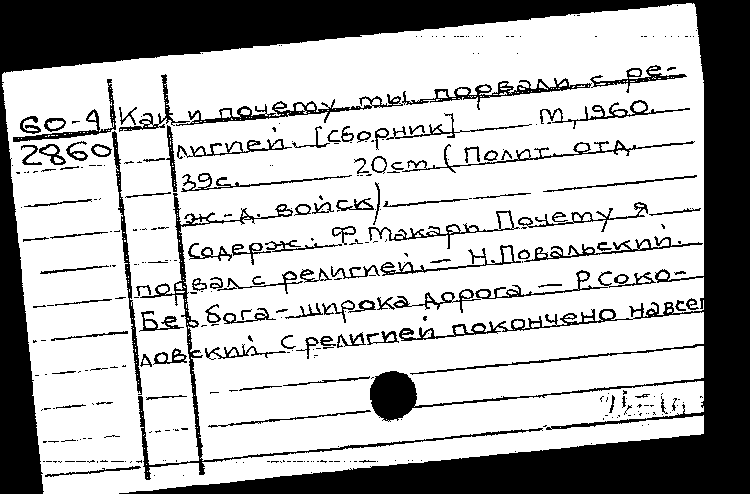 60-4 Как и почему мы порвали с ре-
2860 лигией. [сборник] М, 1960.
39с. 20см. (Полит. отд.
ж.-д. войск).
Содерж.: Ф. Макарь Почему я
порвал с религией. — Н. Повальский.
Без бога - широка дорога. — Р. Соко-
ловский. С религией покончено навсег